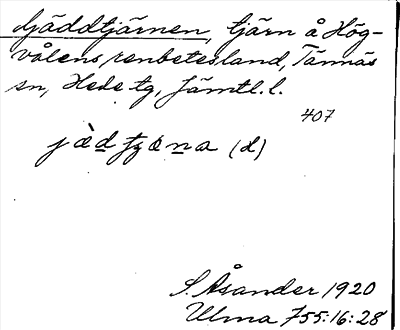 Gäddtjärnen, tjärn å Hög-
vålens renbetesland, Tännäs
sn, Hede tg, Jämtl. l.
407
(d)
S. Åsander 1920
Ulma 755:16:28